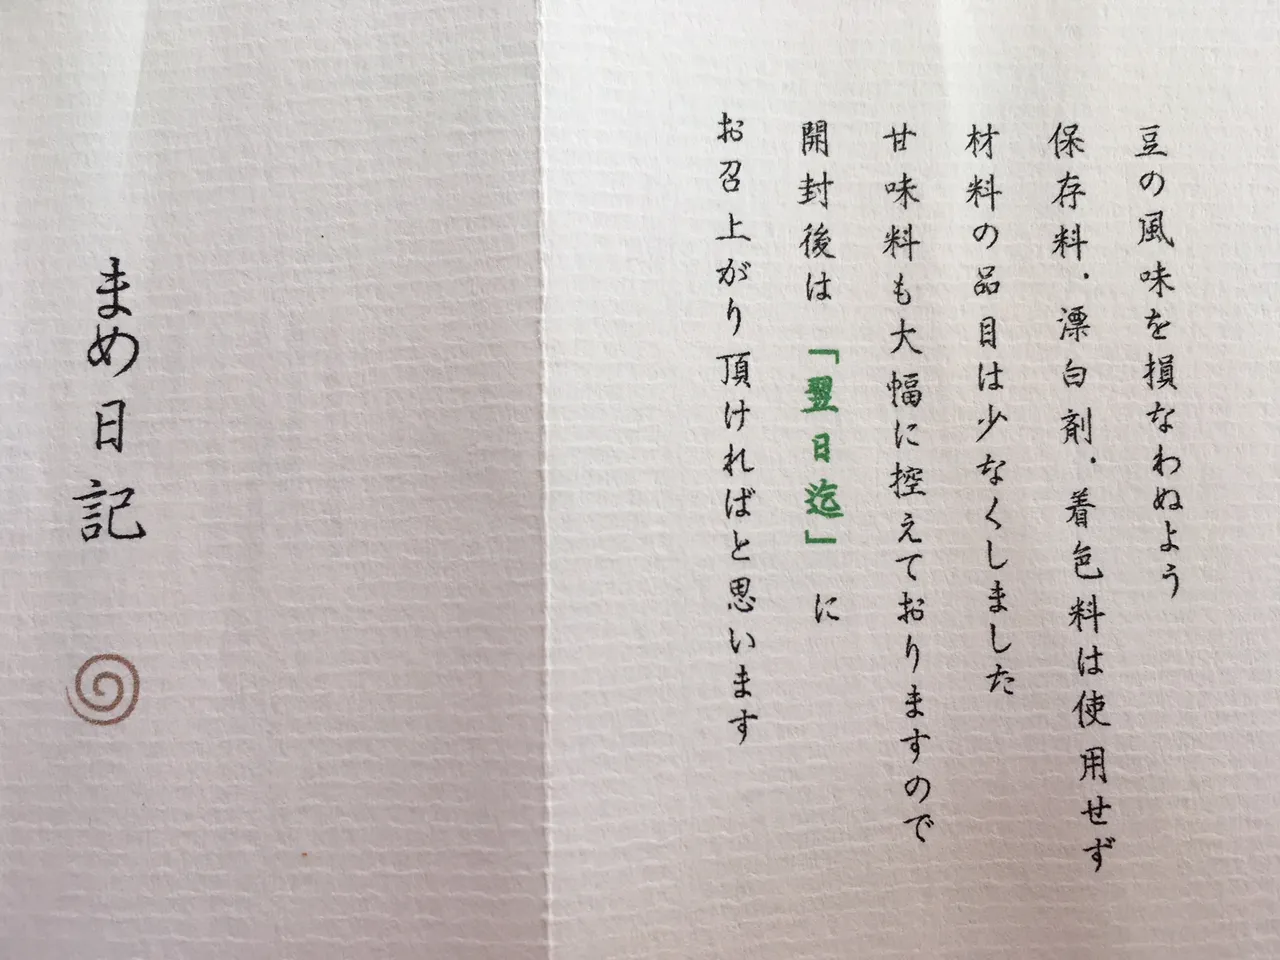 豆の風味を損なわぬよう
保存料・漂白剤・着色料は使用せず
材料の品目は少なくしました
甘味料も大幅に控えておりますので
開封後は「翌日迄」に
お召上がり頂ければと思います
まめ日記